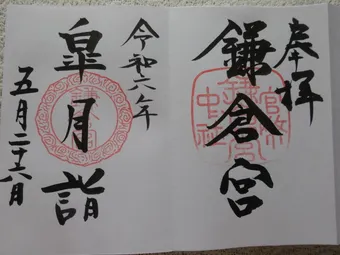 奉拝
鎌倉宮
令和六年
皐月詣
五月二十六日